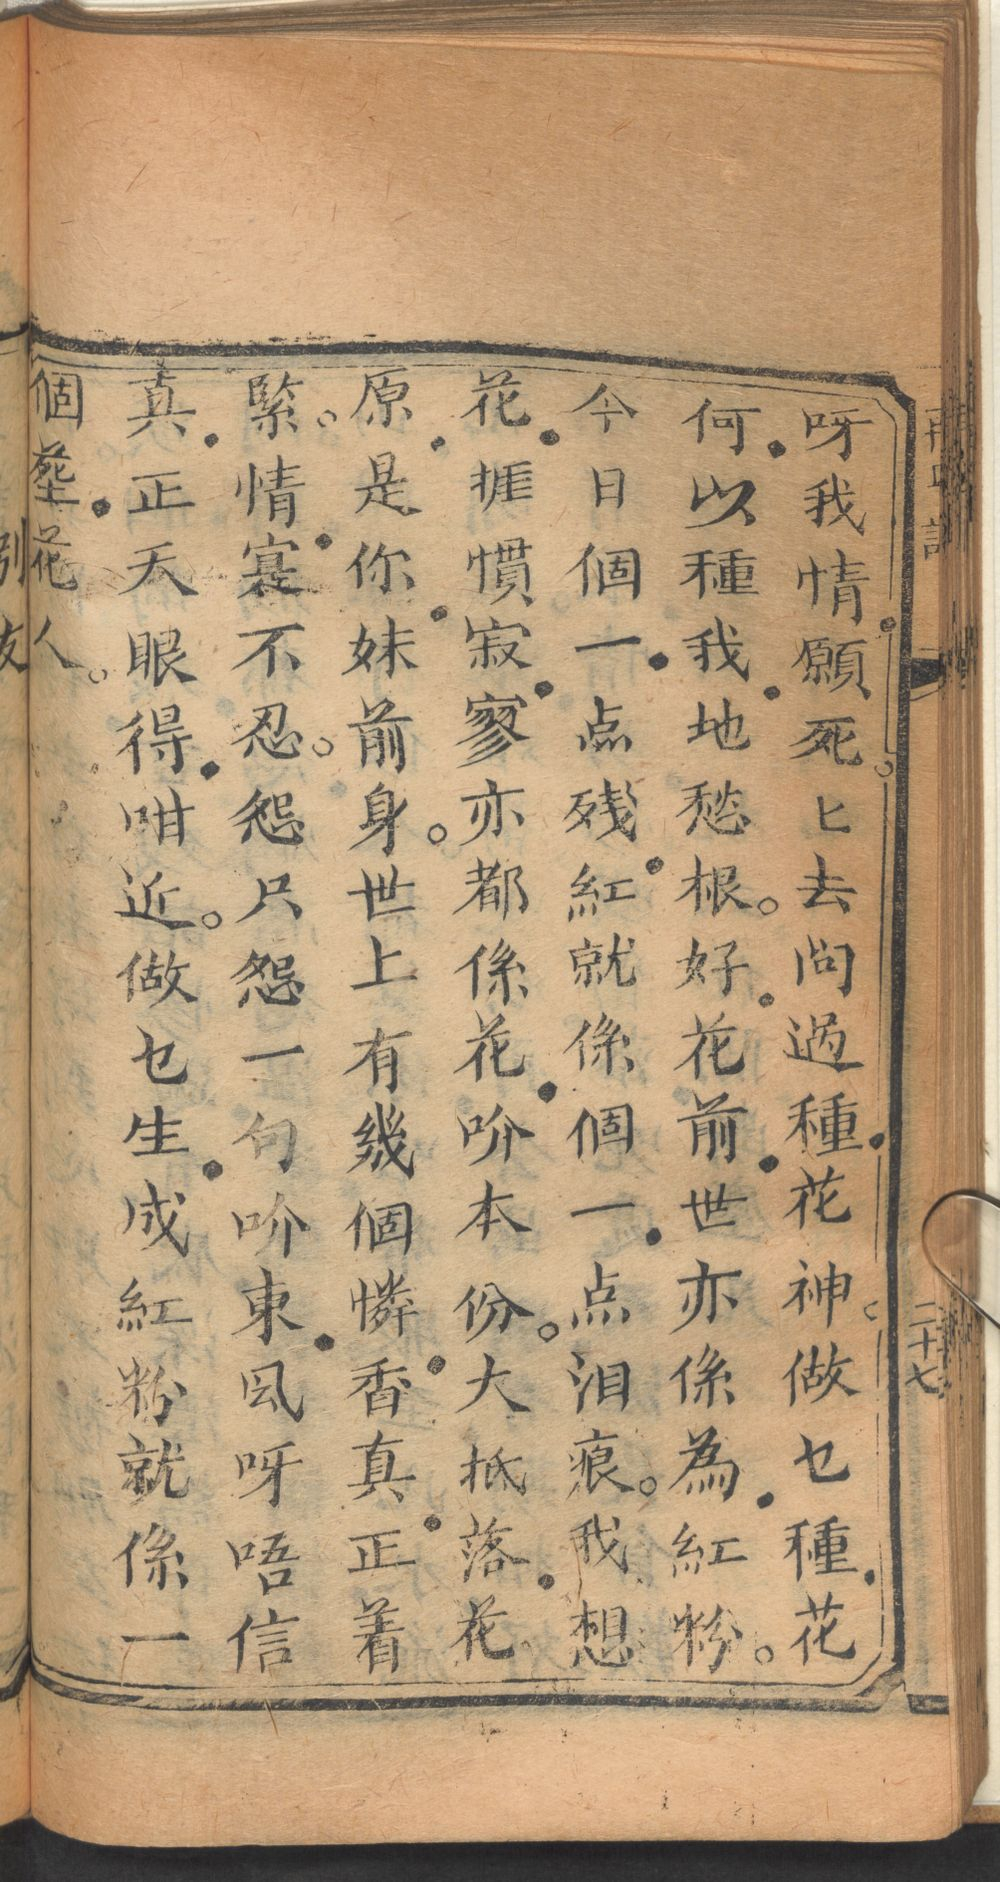 呀我情願死。匕去问過種花神。做乜種花
何以種我地愁根。好花前世亦係為紅粉。
今日個一点残紅就係個一点泪痕。我想
花捱慣寂寥亦都係花吤本份。大抵落花
原是你妹前身。世上有幾個憐香真正着
緊。情寔不忍。怨只怨一句吤東风呀唔信
真正天眼得咁近。做乜生成紅粉就係一
個塟花人。
二十七
別友